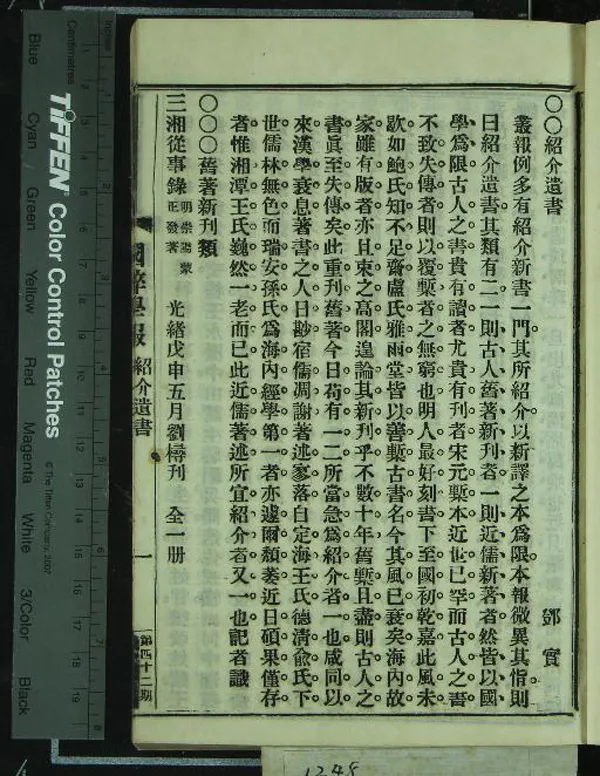 ○○紹介遺書
鄧實
叢報例多有紹介新書一門。其所紹介。以新譯之本爲限。本報微異其恉。則
曰紹介遺書。其類有二。一則古人舊著新刊者。一則近儒新著者。然皆以國
學爲限。古人之書。貴有讀者。尤貴有刊者。宋元槧本。近世已罕。而古人之書
不致失傳者。則以覆槧者之無窮也。明人最好刻書。下至國初乾嘉。此風未
歇。如鮑氏知不足齋。盧氏雅雨堂。皆以善槧古書名。今其風已衰矣。海內故
家。雖有版者。亦且束之高閣。遑論其新刊乎。不數十年。舊槧且盡。則古人之
書。眞至失傳矣。此重刊舊著。今日苟有一二。所當急爲紹介者一也。咸同以
來。漢學衰息。著書之人日尠。宿儒凋謝。著述寥落。自定海王氏德清俞氏下
世。儒林無色。而瑞安孫氏爲海內經學第一者。亦遽爾頹萎。近日碩果僅存
者。惟湘潭王氏。巍然一老而已。此近儒著述。所宜紹介者又一也。記者識
○○○舊著新刊類
三湘從事錄 明崇陽蒙正發著 光緒戊申五月劉樗刊 全一册
國粹學報 紹介遺書 一 第四十二期
Inches
Centimetres
1 2 3 4 5 6 7 8
1 2 3 4 5 6 7 8 9 10 11 12 13 14 15 16 17 18 19
TIFFEN® Color Control Patches
© The Tiffen Company, 2007
Blue Cyan Green Yellow Red Magenta White 3/Color Black
1248